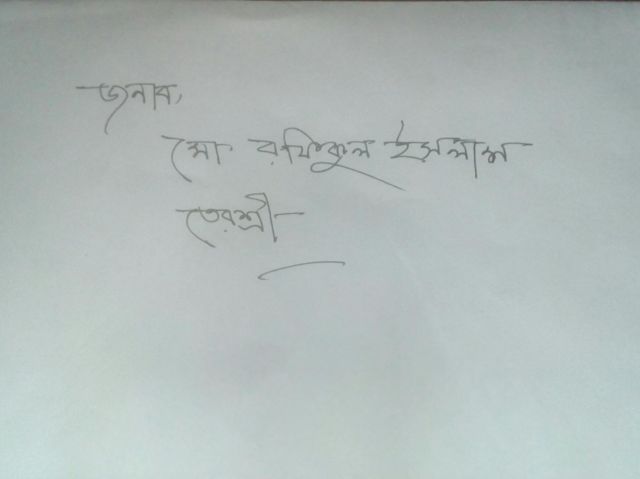 জনাব,
মো. রফিকুল ইসলাম
তেরশ্রী